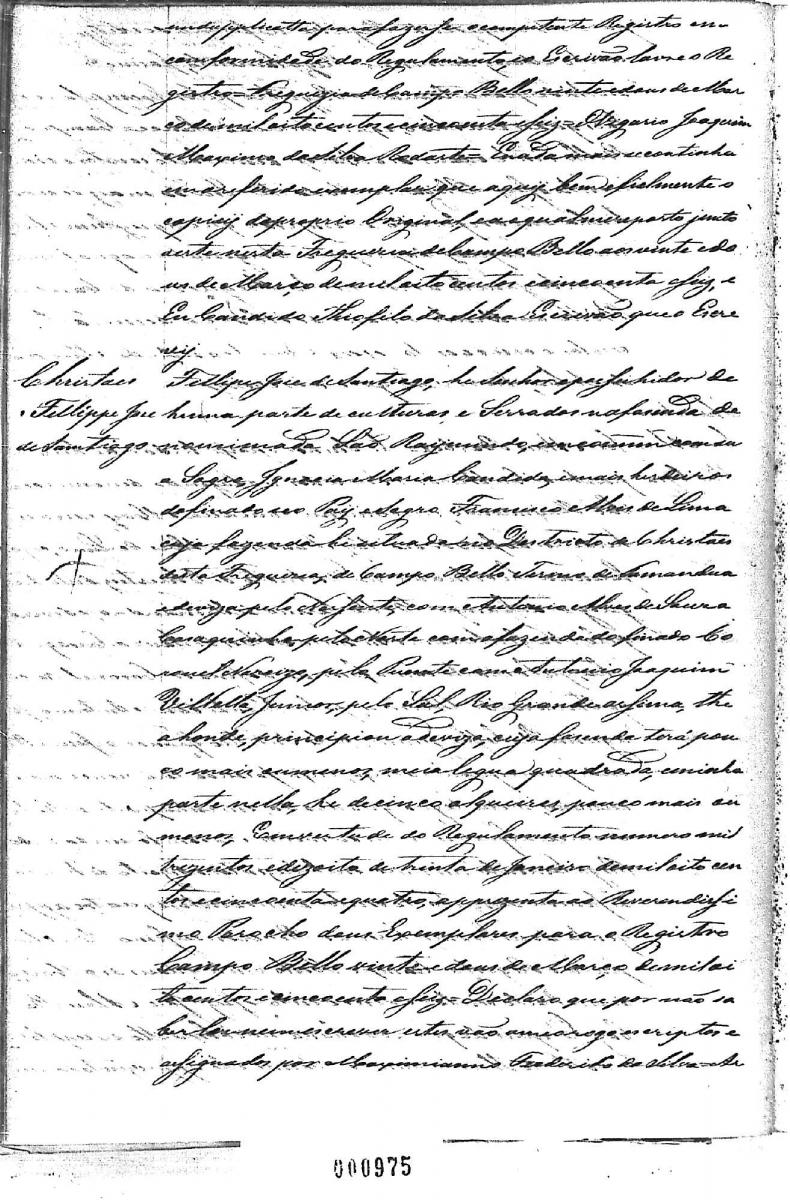 duplicatta para fazer se o competente Registro em
comformidade do Regulamento, o Escrivão lavre o Re
gistro = Freguezia de Campo Bello vinte e deus de Mar
ço de mil oito centos e cincoenta e seiz = O Vigario Joaquim
Maximo da Silva Rodarte = E nada mais se continha
em o referido exemplar que aquy bem e fielmente o
copiey do proprio Original, ea o qual me reporto junto
nesta Freguezia de Campo Bello aos vinte e do
us de Março de mil oito centos e cincoenta e seiz, e
Eu Candido Theofilo da Silva Escrivão que o Escre
vy
Christaes
Fellippe Joze
de Santiago
Fellipe Joze de Santiago, he Senhor e possuhidor de
huma parte de culturas, e Serrados na fazenda de
nominada São Raymundo, em comum com su
a Sogra, Ignacia Maria Candida, e mais herdeiros
do finado seo Pay e Sogro Francisco Alves de Lima
cuja fazenda he situada no Districto de Christaes
desta Freguezia, de Campo Bello Termo de Tamandua
e deviza pelo Nascente, com Antonio Alves de Moura
pelo Norte com a fazenda do finado Co
ronel Nerezo, pelo Puente com Antonio Joaquim
Vilella Junior, pelo Sul Rio Grande acima, the
a honde, principiou a deviza, cuja fazenda terá pou
co mais ou menos, meia legua quadrada, e minha
parte nella, he de cinco alqueires, pouco mais ou
menos, Em virtude do Regulamento numero mil
trezentos e dezoito de trinta de Janeiro de mil oito cen
tos e cincoenta e quatro, apprezenta ao Reverendissi
mo Parocho deus Exemplares para o Registro
Campo Bello vinte e deus de Março de mil oi
to centos e cincoenta e seiz = Declaro que por não sa
ber ler nem escrever estes vão a meo rogo escriptos e
assignados por Maximianno Frederico da Silva = Ar
000975